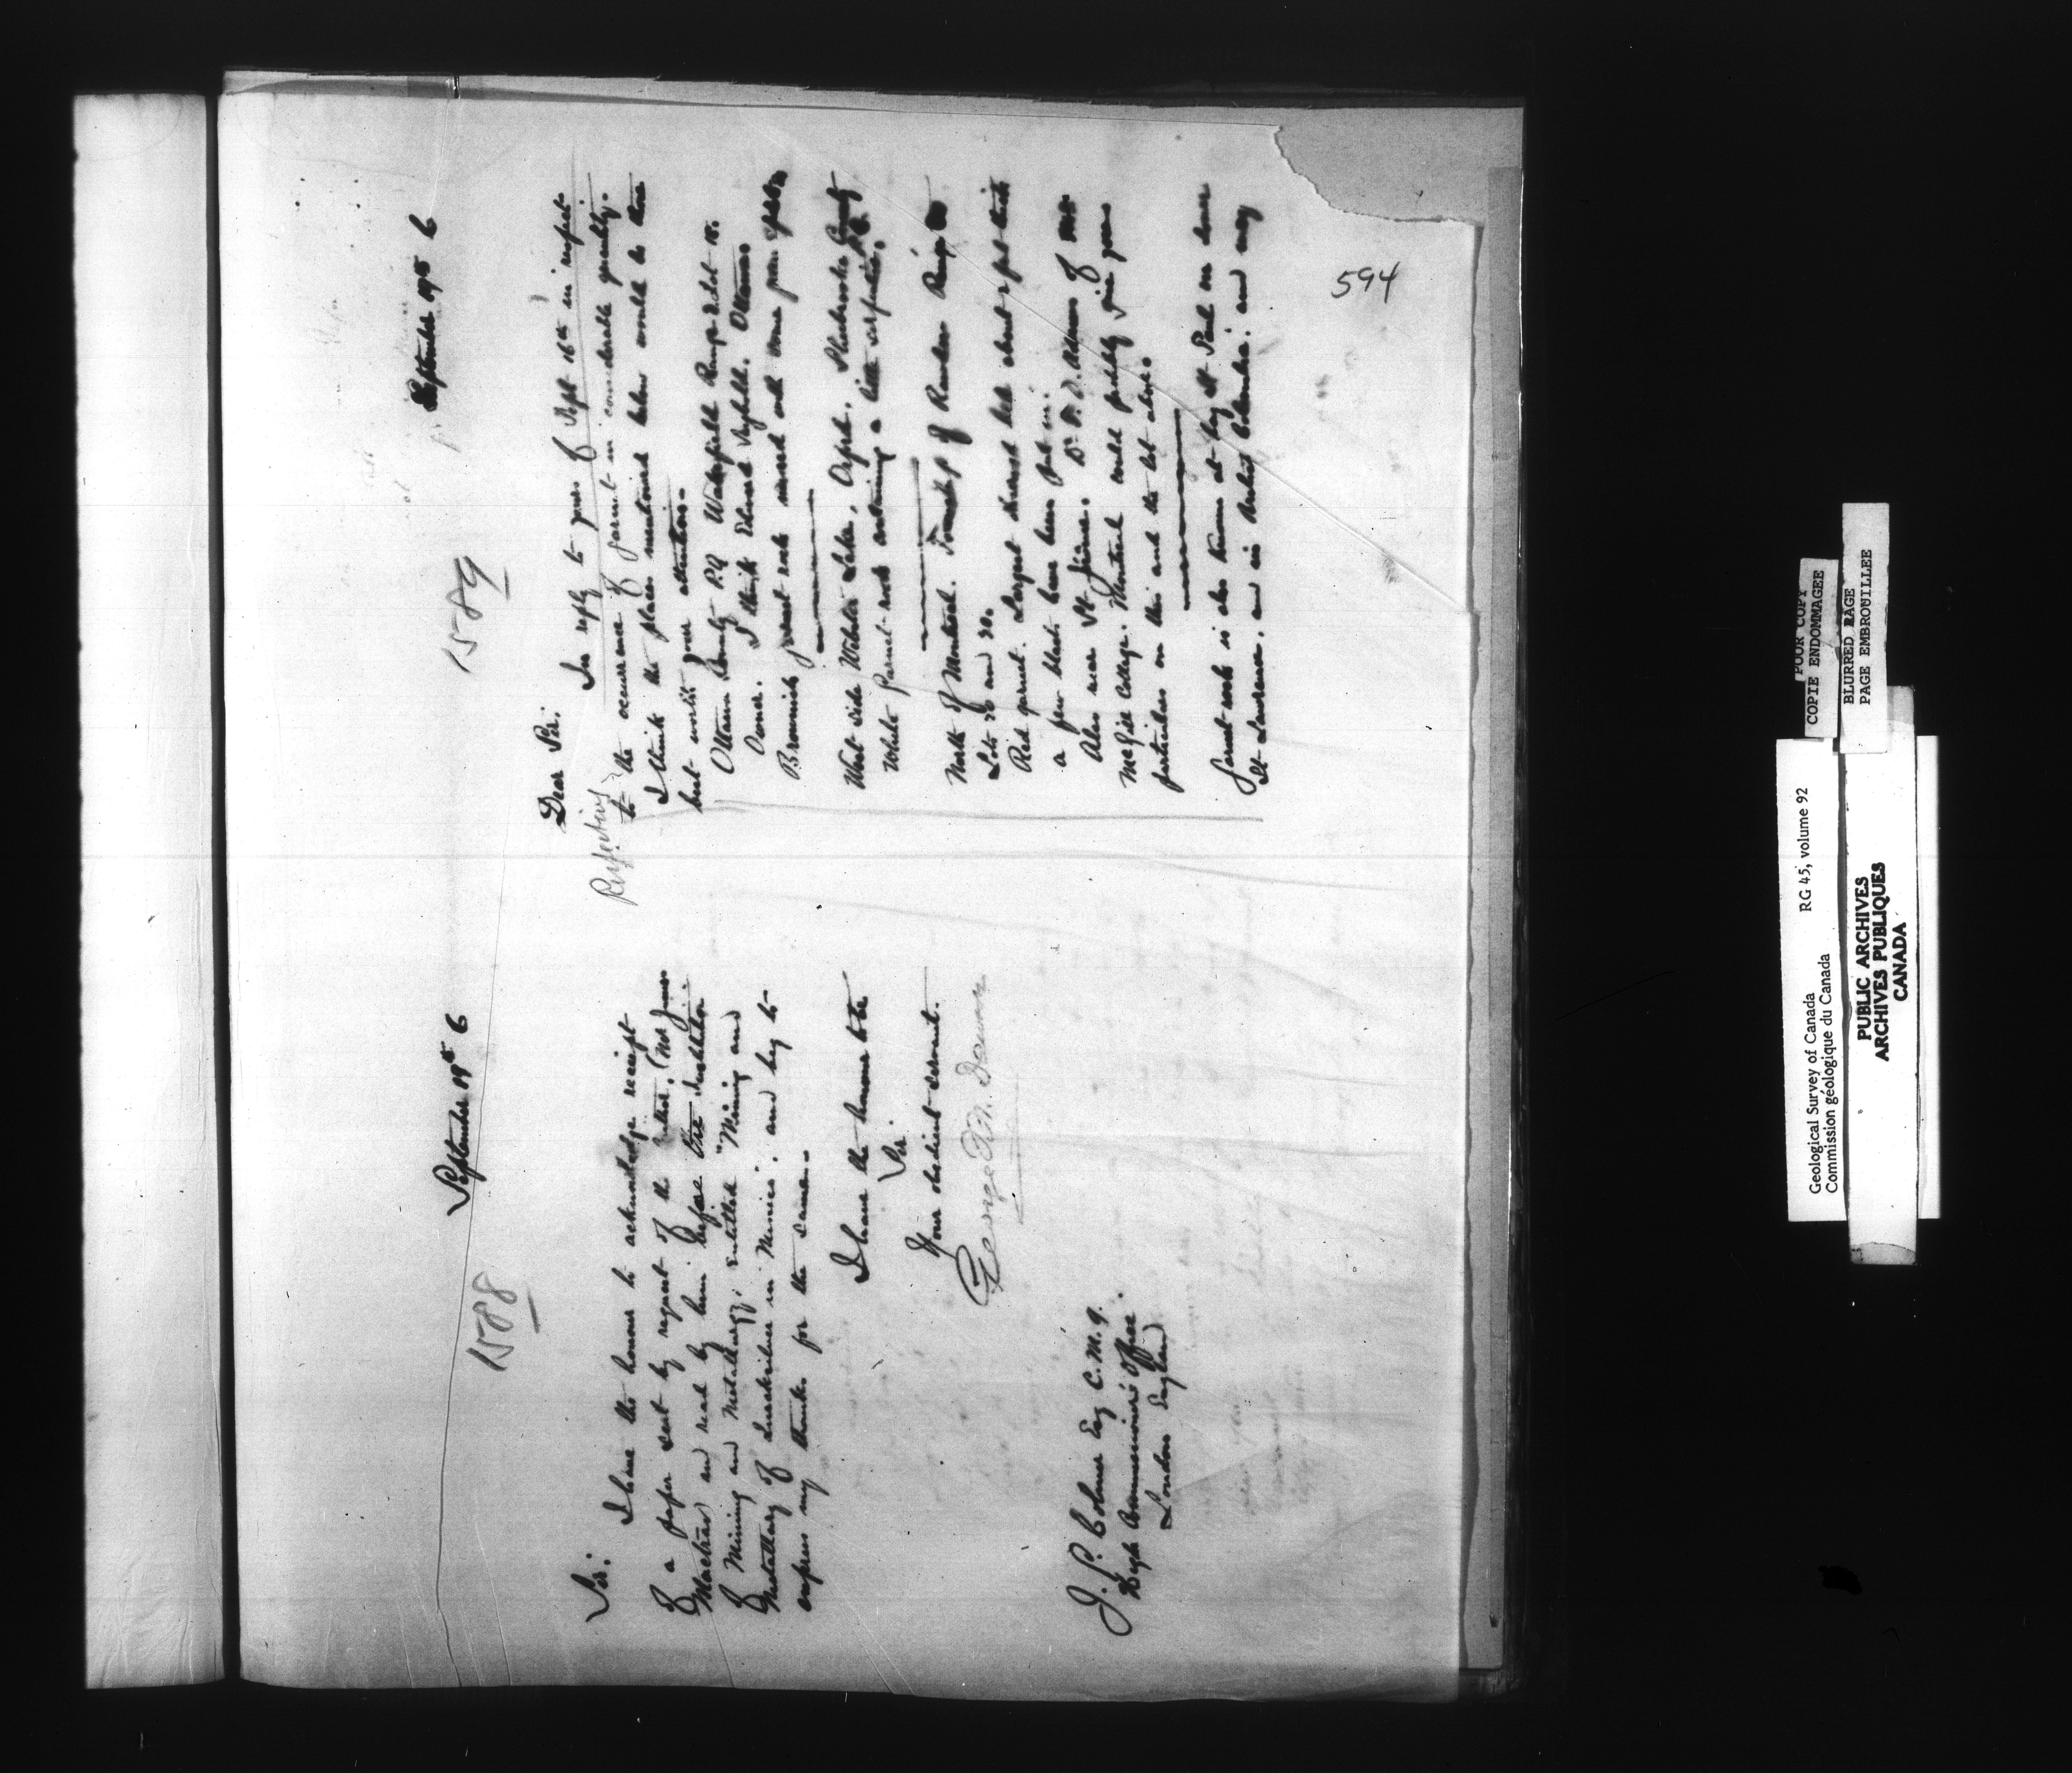 1588
September 19th 6
Sir:
I have the honour to acknowledge receipt
of a paper sent by request of the author, (Mr
and read by him before the Institution
of Mining and Metallurgy; entitled "Mining and
Metallurgy of Quicksilver in Mexico"; and beg to
express my thanks for the same.
I have the honour to be
Sir
Your obedient servant.
George M. Dawson
J. G. Colmer Esq C.M.G.
High Commissioner's Office.
London England
1589
September 19th 6
Dear Sir:
In reply to yours of Sept 16th in respect
Respecting
to the occurrence of garnet in considerable quantity.
I think the places mentioned below would be those
best worth your attention.
Ottawa County P.Q. Wakefield Range 2 Lot 15.
Owner. I think Edward Ottawa
Brownish garnet rock mixed with some green
West side Webster Lake, Orford. Sherbrooke County
White Garnet-rock containing a little P.Q.
North of Montreal. Township of Rawdon Range
Lots 20 and 30.
Red garnet. Largest thickness bed about 2 feet thick
a few blasts have been put in.
Also near St Jérome. Dr F. D. Adams of
McGill College. Montreal could probably give you
particulars on this and the lot above.
Garnet rock is also known at bay St Paul on lower
St Lawrence. and in British Columbia. and may
594
POOR COPY
COPIE ENDOMMAGEE
BLURRED PAGE
PAGE EMBROUILLEE
Geological Survey of Canada RG 45, volume 92
Commission géologique du Canada
PUBLIC ARCHIVES
ARCHIVES PUBLIQUES
CANADA